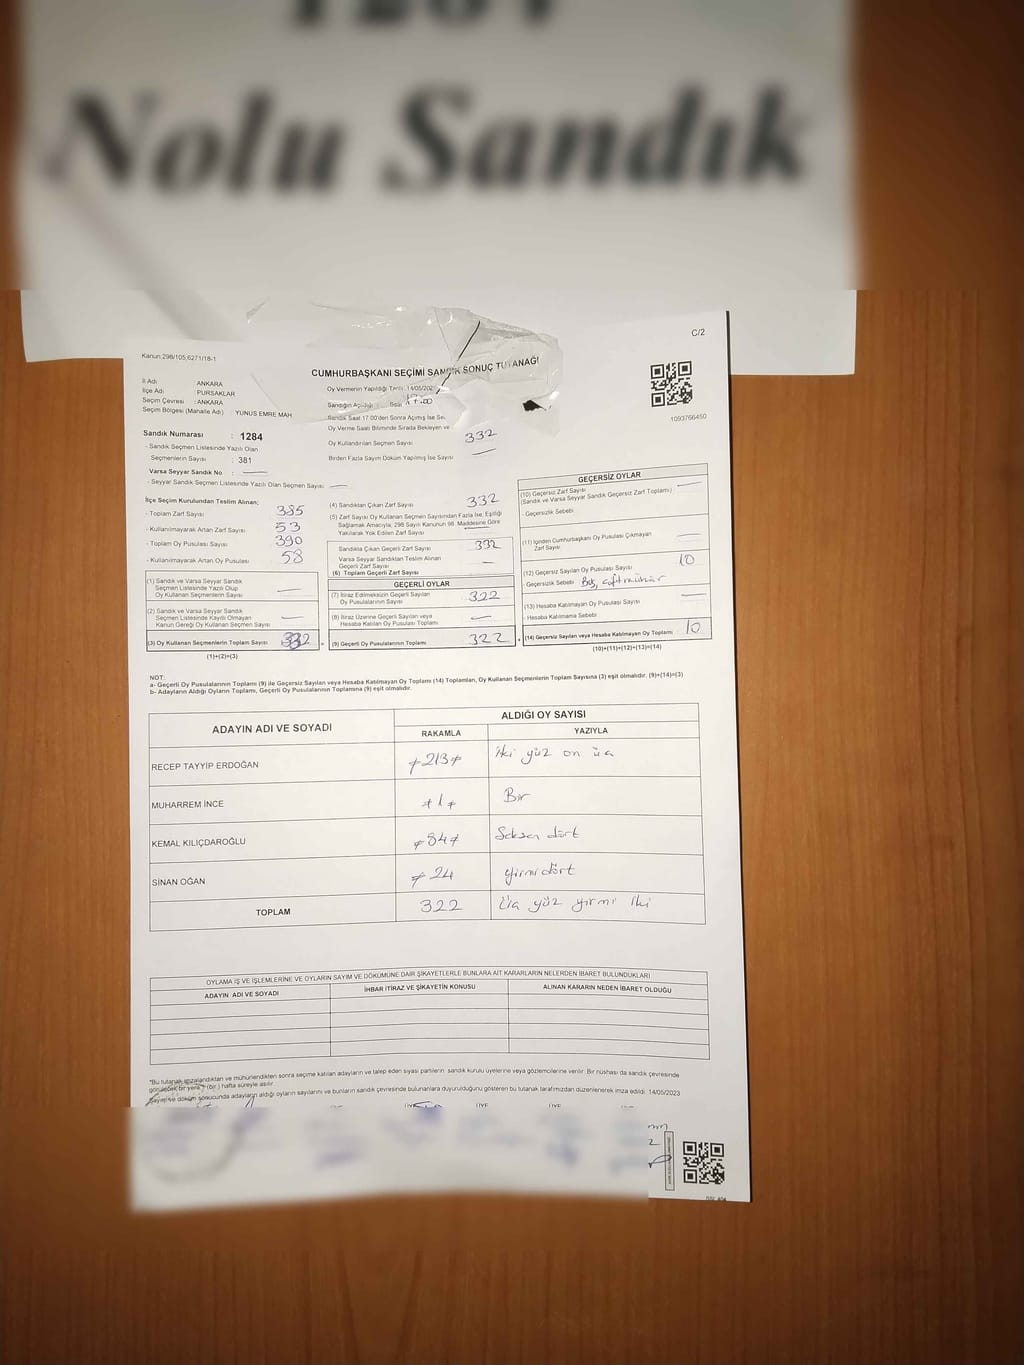 Nolu Sandık
C/2
Kanun:298/105,6271/18-1
CUMHURBAŞKANI SEÇİMİ SANDIK SONUÇ TUTANAĞI
İl Adı ANKARA
İlçe Adı PURSAKLAR
Seçim Çevresi : ANKARA
Seçim Bölgesi (Mahalle Adı) : YUNUS EMRE MAH
Oy Vermenin Yapıldığı Tarih 14/05/202
Sandığın Açıldığı 17:00
Sandık Saat 17.00'den Sonra Açılmış İse
Oy Verme Saati Bitiminde Sırada Bekleyen ve
Oy Kullandırılan Seçmen Sayısı 332
Birden Fazla Sayım Döküm Yapılmış İse Sayısı —
1093766450
Sandık Numarası : 1284
- Sandık Seçmen Listesinde Yazılı Olan
Seçmenlerin Sayısı : 381
Varsa Seyyar Sandık No : —
- Seyyar Sandık Seçmen Listesinde Yazılı Olan Seçmen Sayısı : —
İlçe Seçim Kurulundan Teslim Alınan;
- Toplam Zarf Sayısı 385
- Kullanılmayarak Artan Zarf Sayısı 53
- Toplam Oy Pusulası Sayısı 390
- Kullanılmayarak Artan Oy Pusulası 58
(1) Sandık ve Varsa Seyyar Sandık
Seçmen Listesinde Yazılı Olup
Oy Kullanan Seçmenlerin Sayısı —
(2) Sandık ve Varsa Seyyar Sandık
Seçmen Listesinde Kayıtlı Olmayan
Kanun Gereği Oy Kullanan Seçmen Sayısı —
(3) Oy Kullanan Seçmenlerin Toplam Sayısı 332
(1)+(2)=(3)
(4) Sandıktan Çıkan Zarf Sayısı 332
(5) Zarf Sayısı Oy Kullanan Seçmen Sayısından Fazla İse, Eşitliği
Sağlamak Amacıyla, 298 Sayılı Kanunun 98. Maddesine Göre
Yakılarak Yok Edilen Zarf Sayısı —
Sandıkta Çıkan Geçerli Zarf Sayısı 332
Varsa Seyyar Sandıktan Teslim Alınan
Geçerli Zarf Sayısı —
(6) Toplam Geçerli Zarf Sayısı
GEÇERLİ OYLAR
(7) İtiraz Edilmeksizin Geçerli Sayılan
Oy Pusulalarının Sayısı 322
(8) İtiraz Üzerine Geçerli Sayılan veya
Hesaba Katılan Oy Pusulası Toplamı —
(9) Geçerli Oy Pusulalarının Toplamı 322
GEÇERSİZ OYLAR
(10) Geçersiz Zarf Sayısı —
(Sandık ve Varsa Seyyar Sandık Geçersiz Zarf Toplamı)
- Geçersizlik Sebebi
(11) İçinden Cumhurbaşkanı Oy Pusulası Çıkmayan
Zarf Sayısı —
(12) Geçersiz Sayılan Oy Pusulası Sayısı 10
- Geçersizlik Sebebi Boş, çift mühür
(13) Hesaba Katılmayan Oy Pusulası Sayısı —
- Hesaba Katılmama Sebebi
(14) Geçersiz Sayılan veya Hesaba Katılmayan Oy Toplamı 10
(10)+(11)+(12)+(13)=(14)
NOT:
a- Geçerli Oy Pusulalarının Toplamı (9) ile Geçersiz Sayılan veya Hesaba Katılmayan Oy Toplamı (14) Toplamları, Oy Kullanan Seçmenlerin Toplam Sayısına (3) eşit olmalıdır. (9)+(14)=(3)
b- Adayların Aldığı Oyların Toplamı, Geçerli Oy Pusulalarının Toplamına (9) eşit olmalıdır.
ADAYIN ADI VE SOYADI ALDIĞI OY SAYISI
RAKAMLA YAZIYLA
RECEP TAYYİP ERDOĞAN 213 İki yüz on üç
MUHARREM İNCE 1 Bir
KEMAL KILIÇDAROĞLU 84 Seksen dört
SİNAN OĞAN 24 yirmi dört
TOPLAM 322 Üç yüz yirmi iki
OYLAMA İŞ VE İŞLEMLERİNE VE OYLARIN SAYIM VE DÖKÜMÜNE DAİR ŞİKAYETLERLE BUNLARA AİT KARARLARIN NELERDEN İBARET BULUNDUKLARI
ADAYIN ADI VE SOYADI İHBAR İTİRAZ VE ŞİKAYETİN KONUSU ALINAN KARARIN NEDEN İBARET OLDUĞU
"Bu tutanak imzalandıktan ve mühürlendikten sonra seçime katılan adayların ve talep eden siyasi partilerin sandık kurulu üyelerine veya gözlemcilerine verilir. Bir nüshası da sandık çevresinde
görülebilir bir yere 1 (bir) hafta süreyle asılır.
Sayım ve döküm sonucunda adayların aldığı oyların sayılarını ve bunların sandık çevresinde bulunanlara duyurulduğunu gösteren bu tutanak tarafımızdan düzenlenerek imza edildi. 14/05/2023